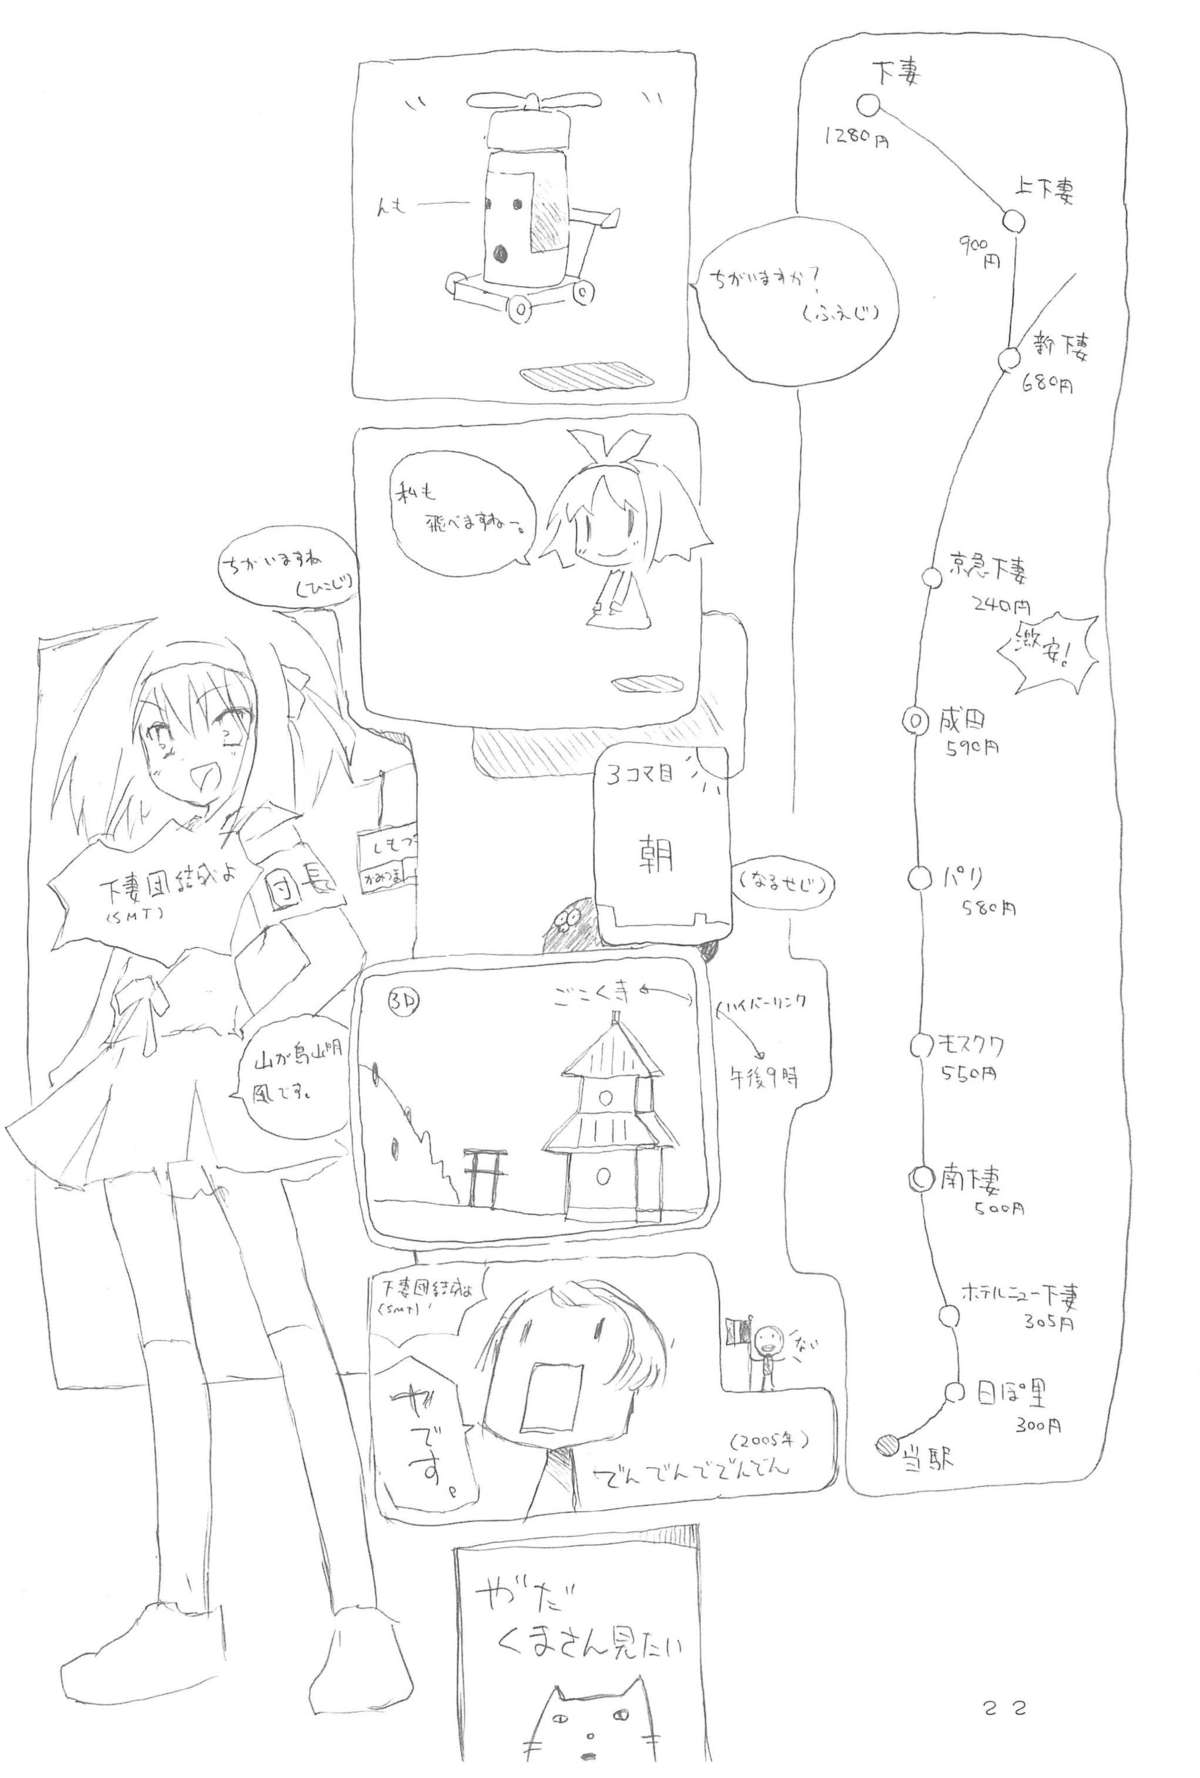 んも
ちがいますか?
(ふえじ)
私も
飛べますねー。
ちがいますね
(ひこじ)
下妻団結成よ
(SMT)
団長
しもつ
かみつま
3コマ目
朝
(なるせじ)
山が鳥山明
風です。
3D
ごこく寺
(ハイパーリンク
午後9時
下妻団結成よ
(SMT)
やです。
ない
(2005年)
でんでんででんでん
やだ
くまさん見たい
下妻
1280円
上下妻
900円
新下妻
680円
京急下妻
240円
激安!
成田
590円
パリ
580円
モスクワ
550円
南下妻
500円
ホテルニュー下妻
305円
日ぽ里
300円
当駅
22